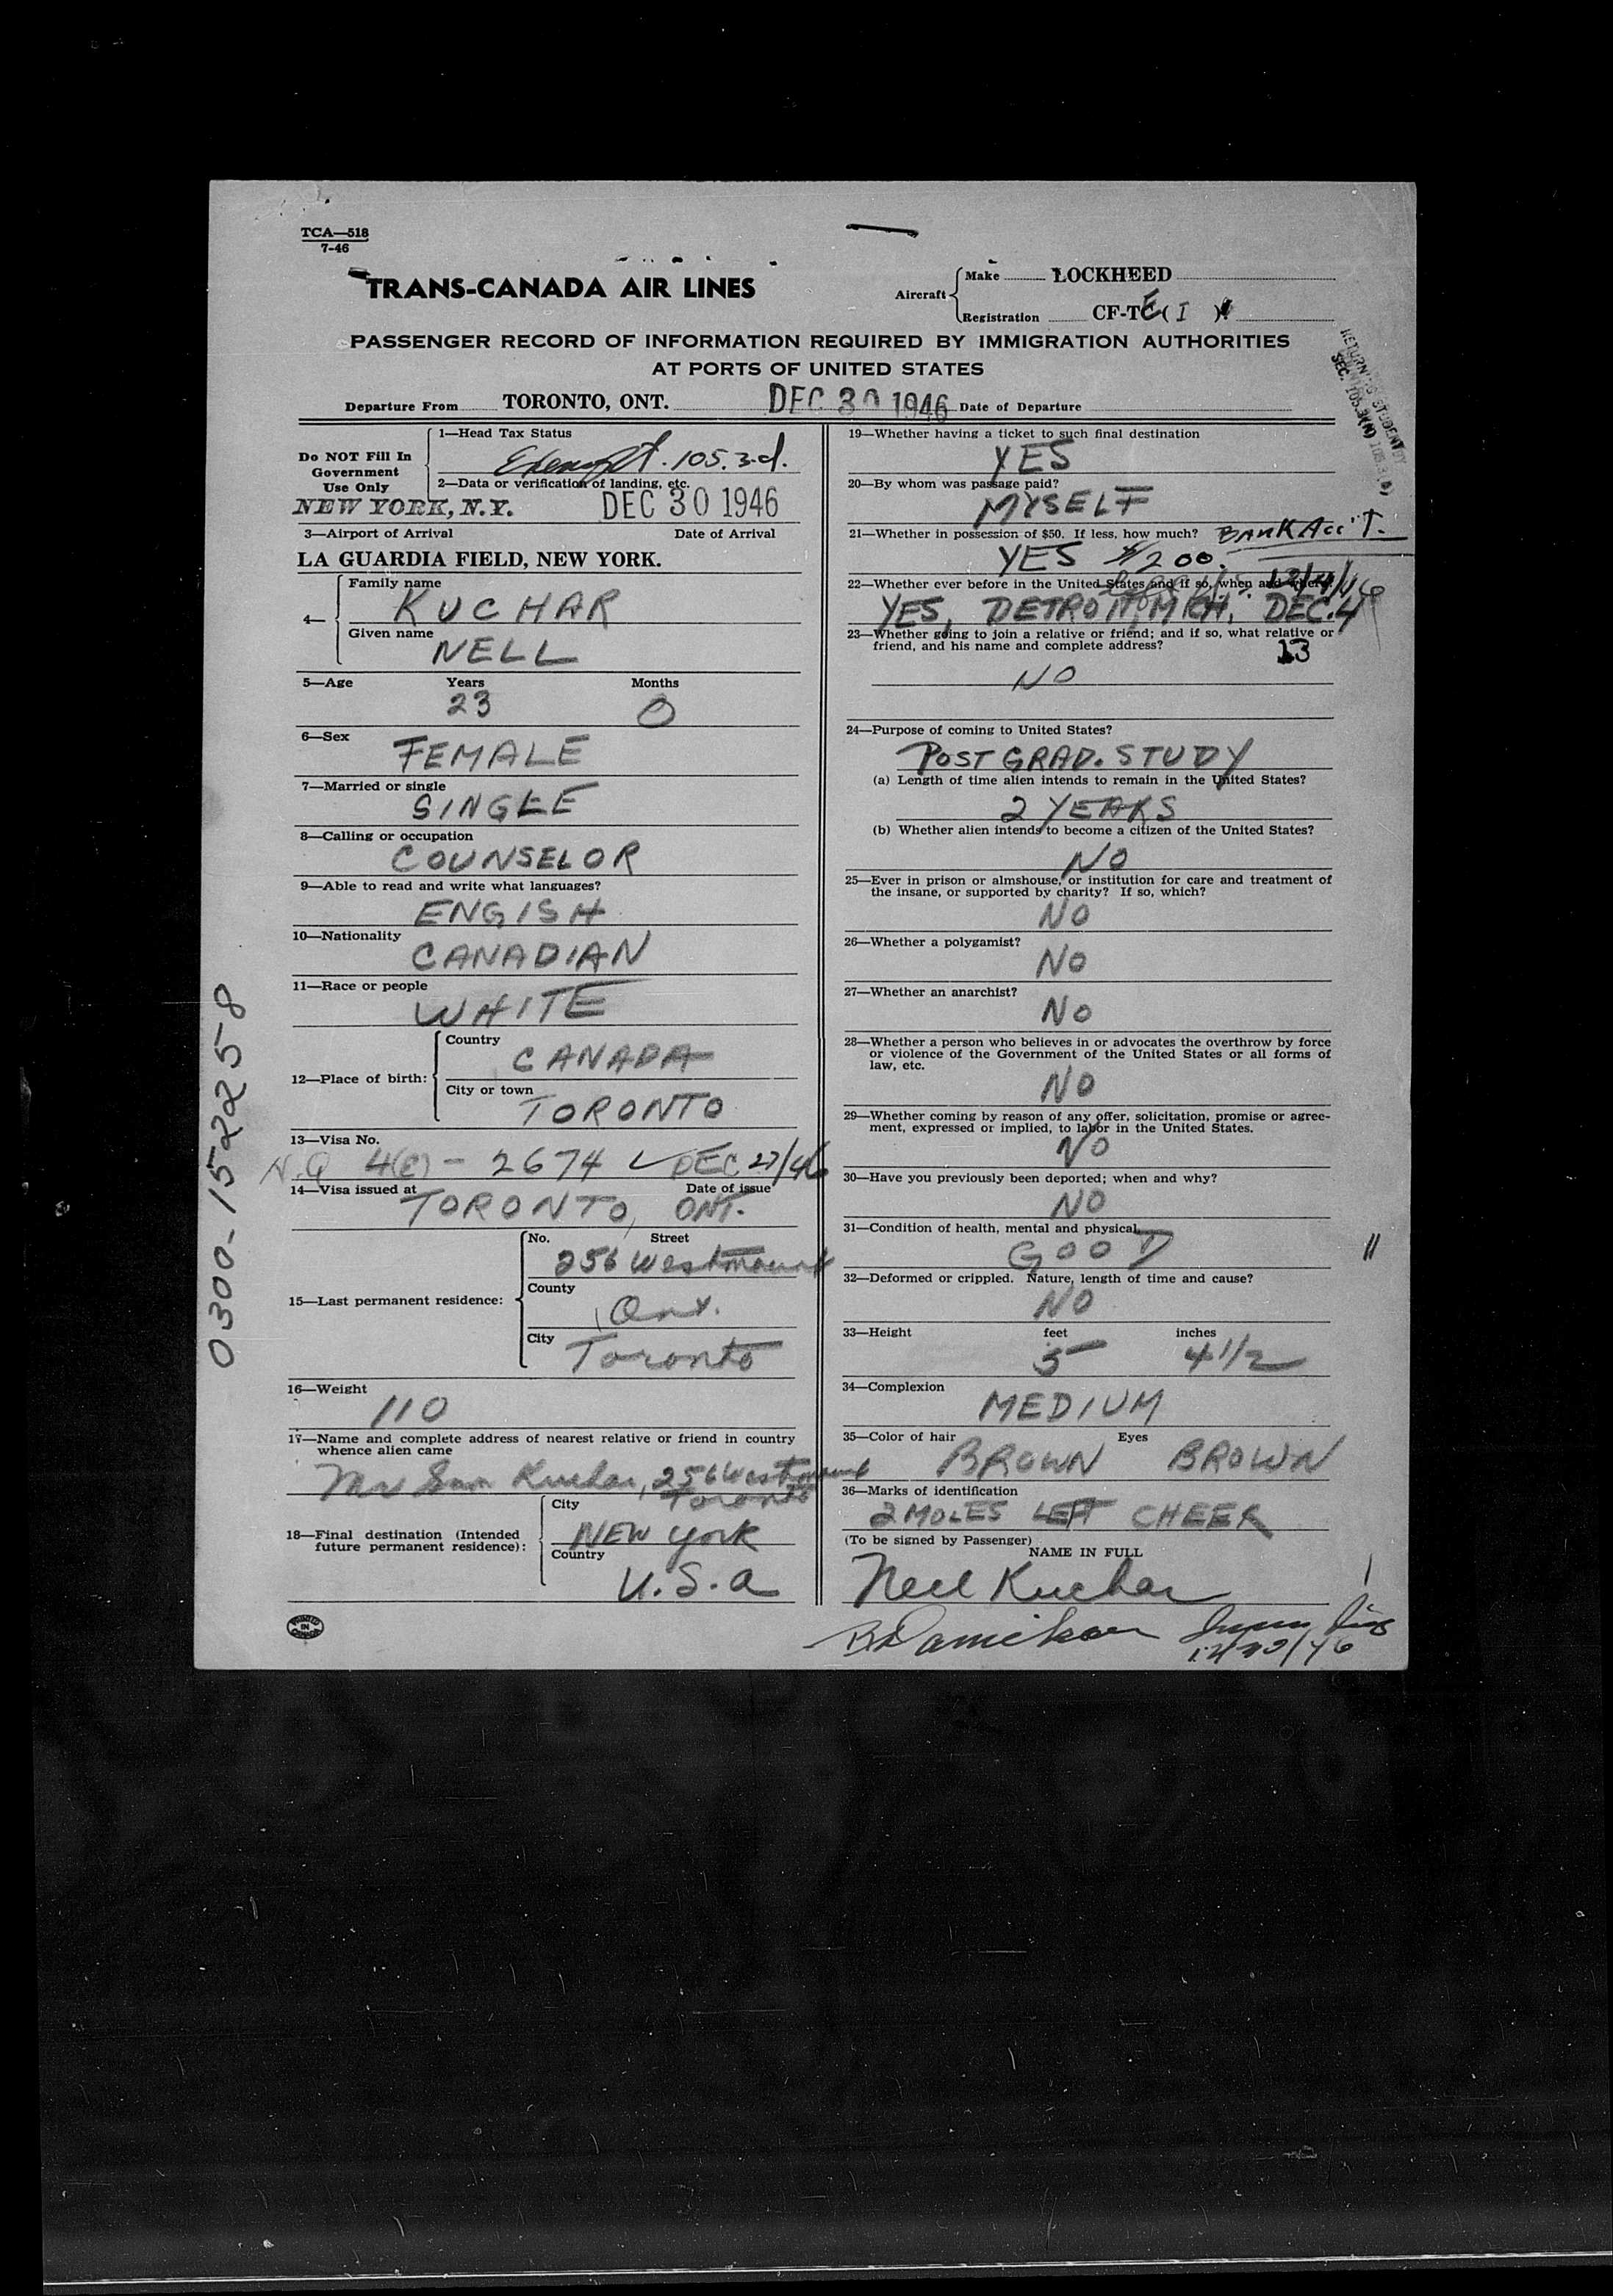 TCA—518
7-46
TRANS-CANADA AIR LINES
Aircraft
Make LOCKHEED
Registration CF-TCE ( I )
PASSENGER RECORD OF INFORMATION REQUIRED BY IMMIGRATION AUTHORITIES
AT PORTS OF UNITED STATES
Departure From TORONTO, ONT. DEC 30 1946 Date of Departure
Do NOT Fill In
Government
Use Only
1—Head Tax Status
Exempt. 105.3.d.
2—Data or verification of landing, etc.
NEW YORK, N.Y. DEC 30 1946
3—Airport of Arrival Date of Arrival
LA GUARDIA FIELD, NEW YORK.
4—
Family name
KUCHAR
Given name
NELL
5—Age Years Months
23 0
6—Sex
FEMALE
7—Married or single
SINGLE
8—Calling or occupation
COUNSELOR
9—Able to read and write what languages?
ENGISH
10—Nationality
CANADIAN
11—Race or people
WHITE
12—Place of birth:
Country
CANADA
City or town
TORONTO
13—Visa No.
N.Q 4(E) - 2674 ✓ DEC 27/46
14—Visa issued at Date of issue
TORONTO, ONT.
15—Last permanent residence:
No. Street
256 Westmount
County
Ont.
City
Toronto
16—Weight
110
17—Name and complete address of nearest relative or friend in country
whence alien came
Mr Sam Kuchar, 256 Westmount
Toronto
18—Final destination (Intended
future permanent residence):
City
NEW york
Country
U.S.a
PRINTED IN CANADA
0300-1522258
RETURN'G STUDENT
SEC. 105.3(N)
19—Whether having a ticket to such final destination
YES
20—By whom was passage paid?
MYSELF
21—Whether in possession of $50. If less, how much? BANK ACC'T.
YES $200.
22—Whether ever before in the United States and if so, when and where?
12/4/46
YES, DETROIT, MICH. DEC. 4
23—Whether going to join a relative or friend; and if so, what relative or
friend, and his name and complete address?
13
NO
24—Purpose of coming to United States?
POST GRAD. STUDY
(a) Length of time alien intends to remain in the United States?
2 YEARS
(b) Whether alien intends to become a citizen of the United States?
NO
25—Ever in prison or almshouse, or institution for care and treatment of
the insane, or supported by charity? If so, which?
NO
26—Whether a polygamist?
NO
27—Whether an anarchist?
NO
28—Whether a person who believes in or advocates the overthrow by force
or violence of the Government of the United States or all forms of
law, etc.
NO
29—Whether coming by reason of any offer, solicitation, promise or agree-
ment, expressed or implied, to labor in the United States.
NO
30—Have you previously been deported; when and why?
NO
31—Condition of health, mental and physical.
GOOD
32—Deformed or crippled. Nature, length of time and cause?
NO
33—Height feet inches
5 4 1/2
34—Complexion
MEDIUM
35—Color of hair Eyes
BROWN BROWN
36—Marks of identification
2 MOLES LEFT CHEEK
(To be signed by Passenger)
NAME IN FULL
Nell Kuchar